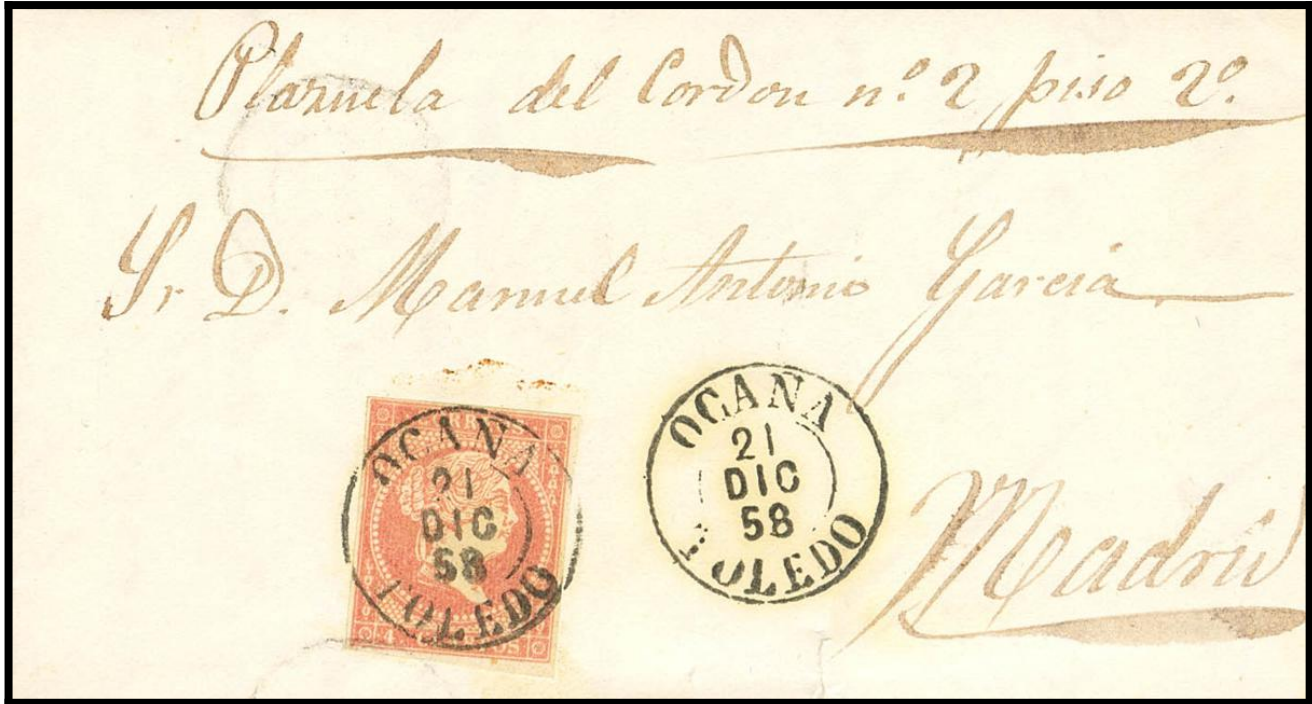 Plazuela del Cordon nº. 2 piso 2º.
Sr. D. Manuel Antonio Garcia
OCAÑA
21
DIC
58
TOLEDO
OCAÑA
21
DIC
58
TOLEDO
Madrid